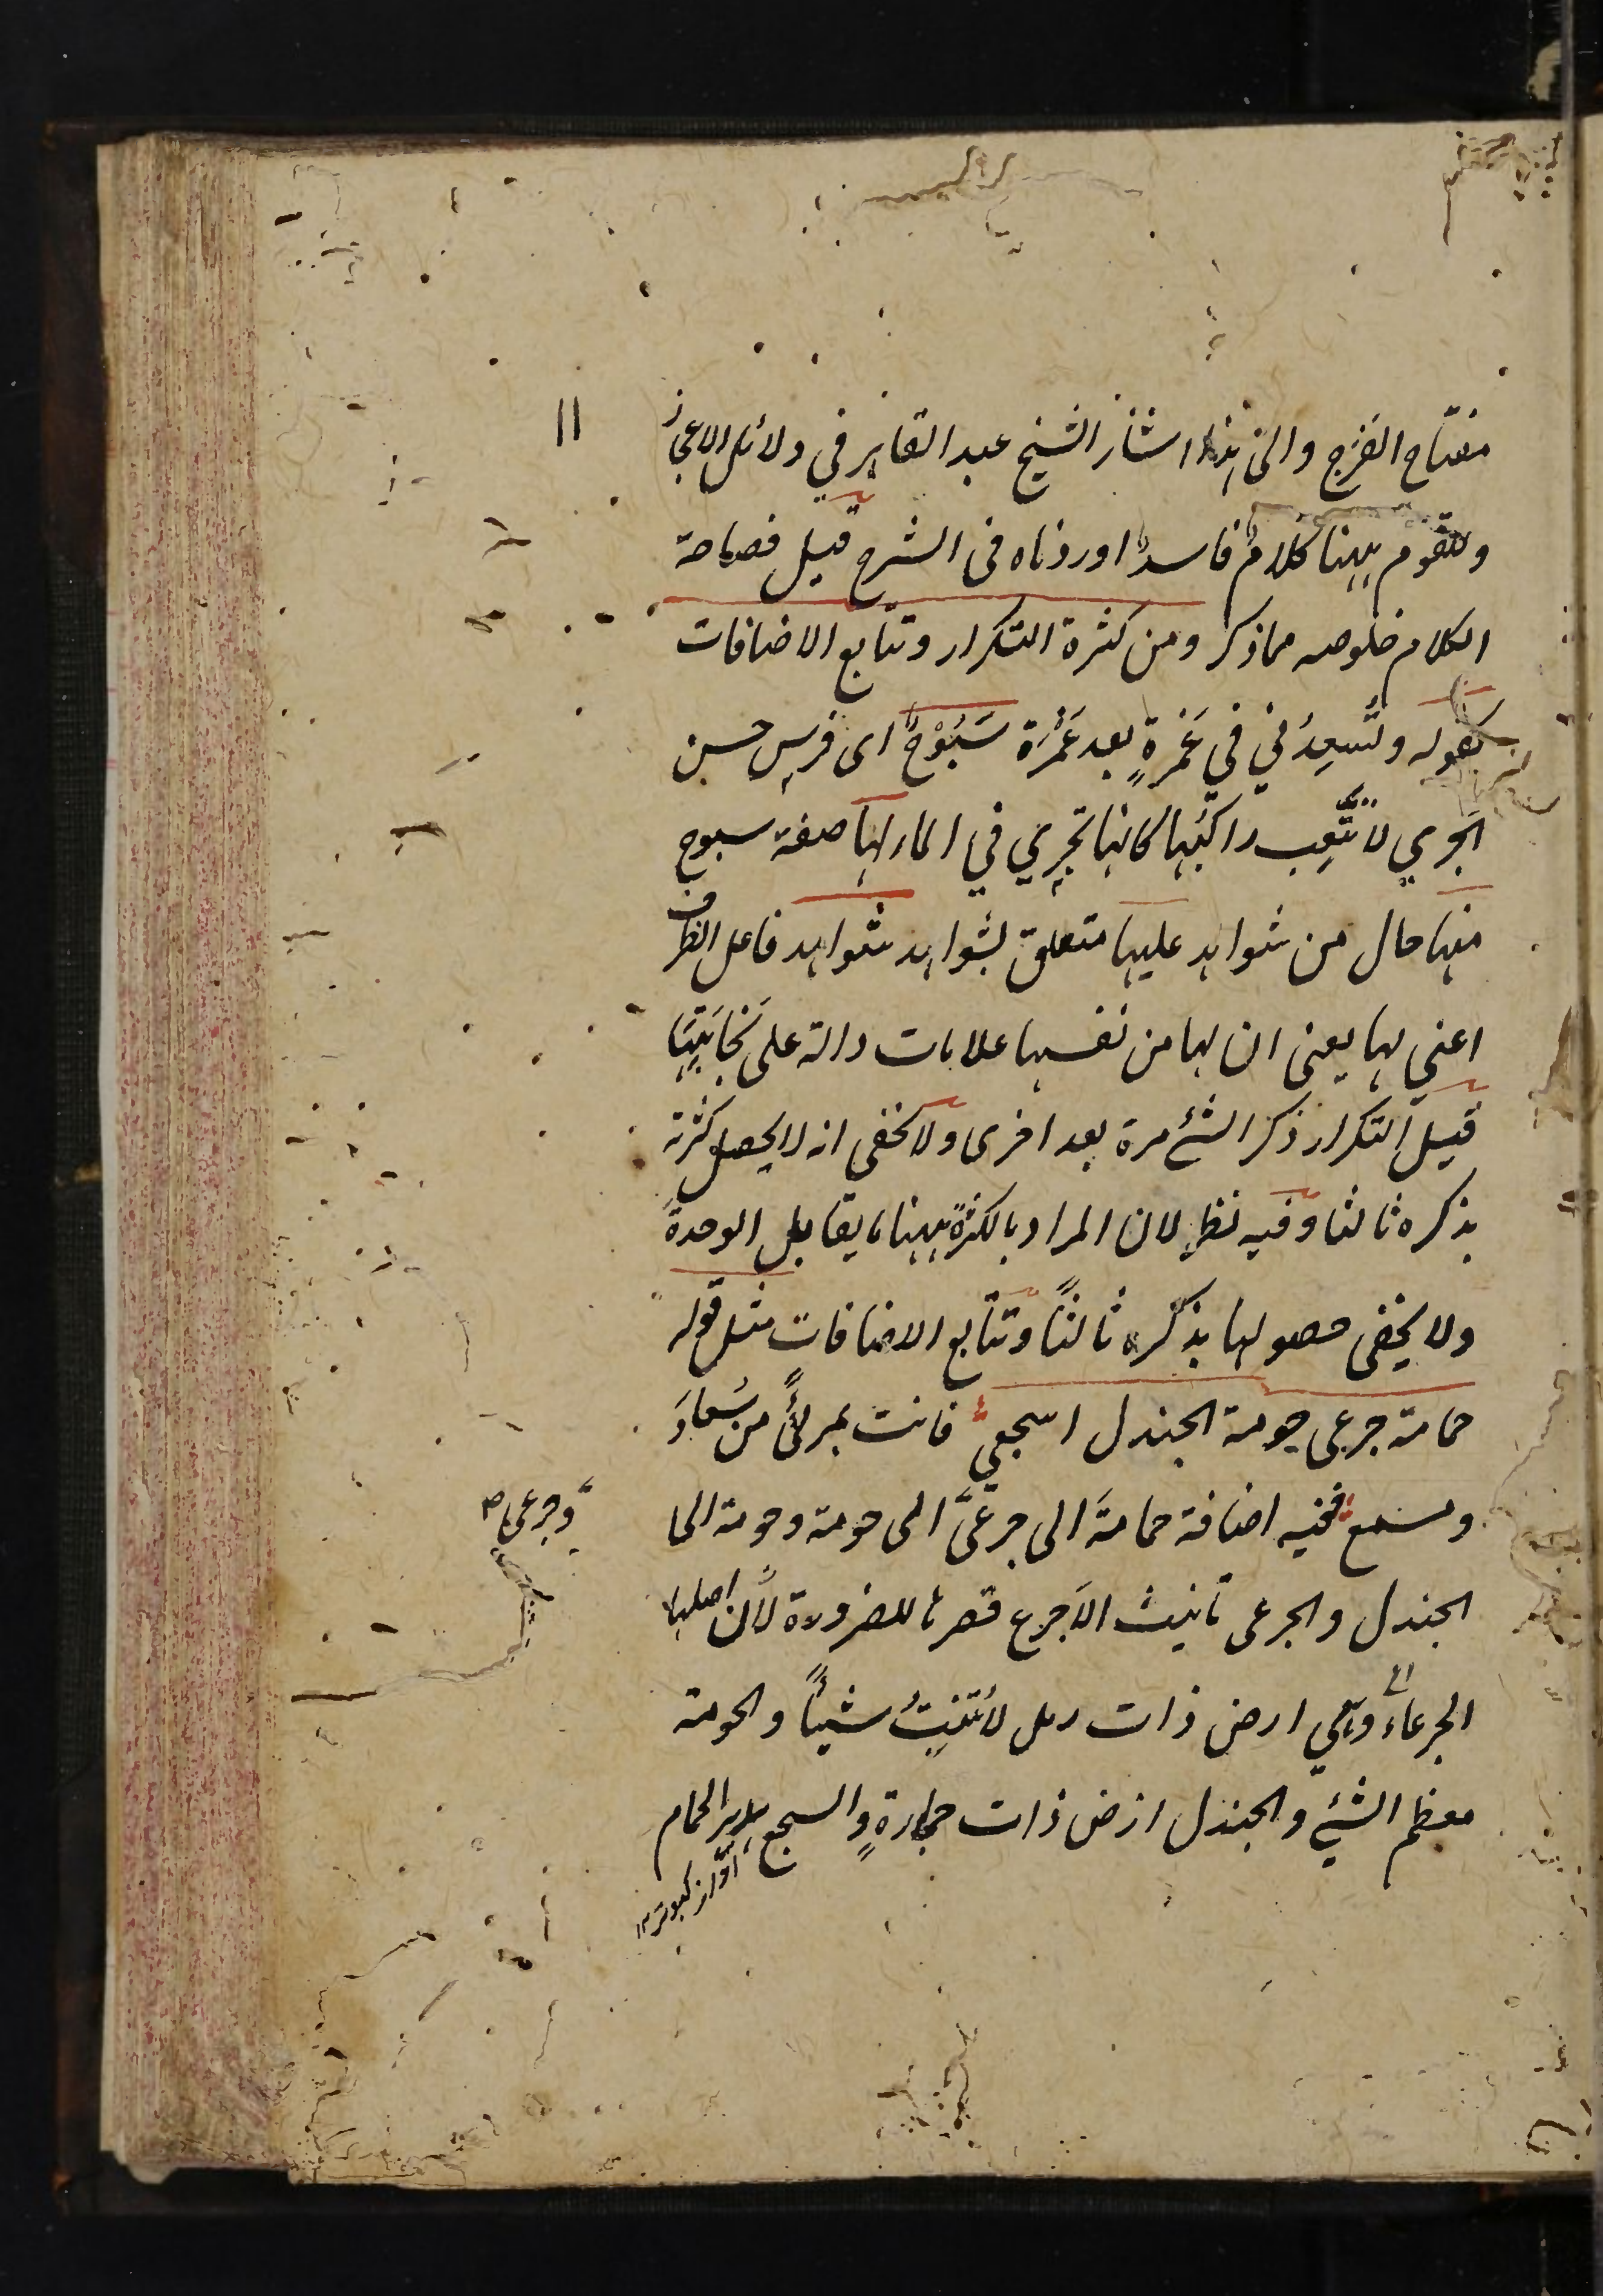 ۱۱
مفتاح الفرج والى هذا اشار الشيخ عبد القاهر في دلائل الاعجاز
وللقوم ههنا كلام فاسد اوردناه فى الشرح قيل فصاحة
الكلام خلوصه مما ذكر ومن كثرة التكرار وتتابع الاضافات
كقوله وتُسعِدُني في غَمرةٍ بعد غَمْرَة سَبُوْحٌ اى فرس حسن
الجري لا تُتعِب راكبَها كانها تجري في الماء لها صفة سبوح
منها حال من شواهد عليها متعلق بشواهد شواهد فاعل الظرف
اعني لها يعنى ان لها من نفسها علامات دالة على نَجابَتِهَا
قيل التكرار ذكر الشئ مرة بعد اخرى ولا يخفى انه لا يحصل كثرته
بذكره ثالثا وفيه نظر لان المراد بالكثرة ههنا ما يقابل الوحدة
ولا يخفى حصولها بذكره ثالثًا وتتابع الاضافات مثل قوله
حمامة جرعى حومة الجندل اسجعي فانت بمرأًى من سُعادَ
ومسمع ففيه اضافة حمامة الى جرعى الى حومة وحومة الى
وجرعى ص
الجندل والجرعى تانيث الاَجرع قصرها للضرورة لان اصلها
الجرعاء وهي ارض ذات رمل لا تُنبِتُ شيئًا والحومة
معظم الشيْ والجندل ارض ذات حجارةٍ والسجع هدير الحمام
آواز كبوتر ۱۲